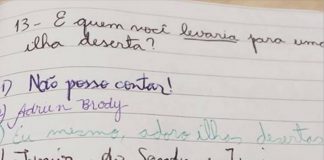 13- E quem você levaria para uma
ilha deserta?
1) Não posso contar!
) Adrien Brody
) Eu mesmo, adoro ilhas desertas
do Sandy e